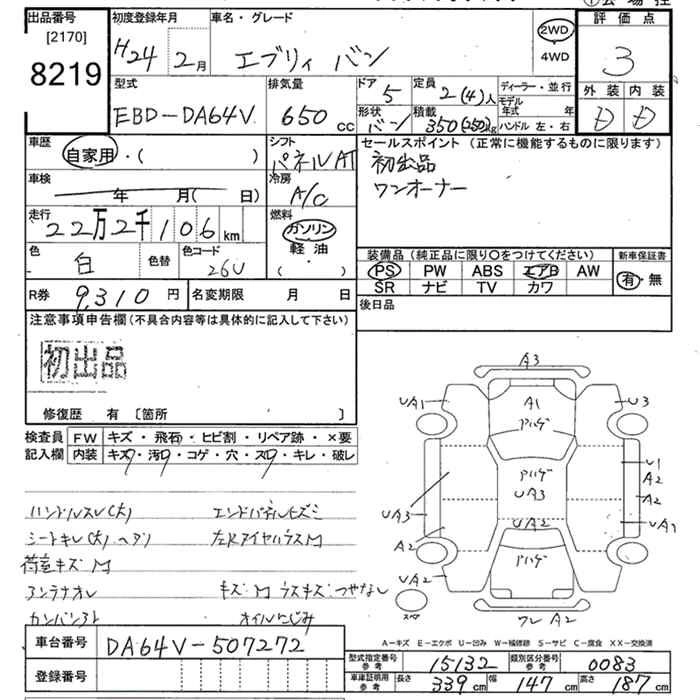 出品番号 初度登録年月 車名・グレード 評価点
[2170]
8219 H24 2月 エブリィ バン 2WD 4WD 3
型式 排気量 ドア 5 定員 2(4)人 ディーラー・並行 外装 内装
EBD-DA64V 650cc 形状 バン 積載 350(250)kg モデル年式 年 ハンドル 左・右 D D
車歴 自家用・( ) シフト パネルAT セールスポイント (正常に機能するものに限ります)
初出品
ワンオーナー
車検 年 月(日) 冷房 A/C
走行 22万2千106km 燃料 ガソリン 軽油 ( )
色 白 色替 色コード 26U
装備品 (純正品に限り○をつけてください) 新車保証書
PS PW ABS エアB AW 有・無
SR ナビ TV カワ
R券 9,310円 名変期限 月 日 後日品
注意事項申告欄 (不具合内容等は具体的に記入して下さい)
初出品
修復歴 有 [箇所 ]
検査員 FW キズ・飛石・ヒビ割・リペア跡・×要
記入欄 内装 キズ・汚・コゲ・穴・スレ・キレ・破レ
ハンドルスレ(大) エンドパネルキズミ
シートキレ(大) ヘタリ
荷室キズM
アンテナオレ キズM ラスキズ つやなし
オイルにじみ
A3
UA1 A1 U3
アハゲ
アハゲ U1
UA3 A2
UA3 A2
UA2 UA2
A2 アハゲ
UA2
スペア ワレ A2
A-キズ E-エクボ U-凹み W-補修跡 S-サビ C-腐食 XX-交換済
車台番号 DA64V-507272
登録番号
型式指定番号 参考 15132 類別区分番号 参考 0083
車庫証明用 参考 長さ 339cm 幅 147cm 高さ 187cm